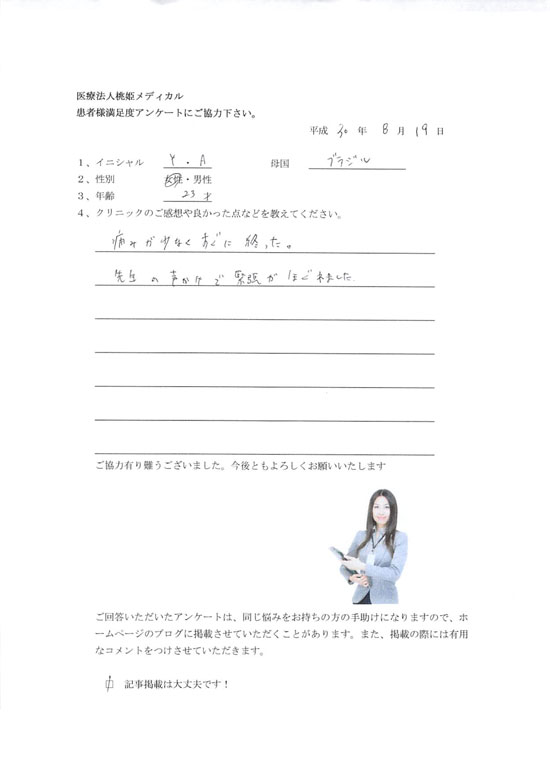 医療法人桃姫メディカル
患者様満足度アンケートにご協力下さい。
平成 30 年 8 月 19 日
1、イニシャル Y . A 母国 ブラジル
2、性別 女性・男性
3、年齢 23 才
4、クリニックのご感想や良かった点などを教えてください。
痛みが少なくすぐに終った。
先生の声かけで緊張がほぐれました.
ご協力有り難うございました。今後ともよろしくお願いいたします
ご回答いただいたアンケートは、同じ悩みをお持ちの方の手助けになりますので、ホ
ームページのブログに掲載させていただくことがあります。また、掲載の際には有用
なコメントをつけさせていただきます。
記事掲載は大丈夫です！